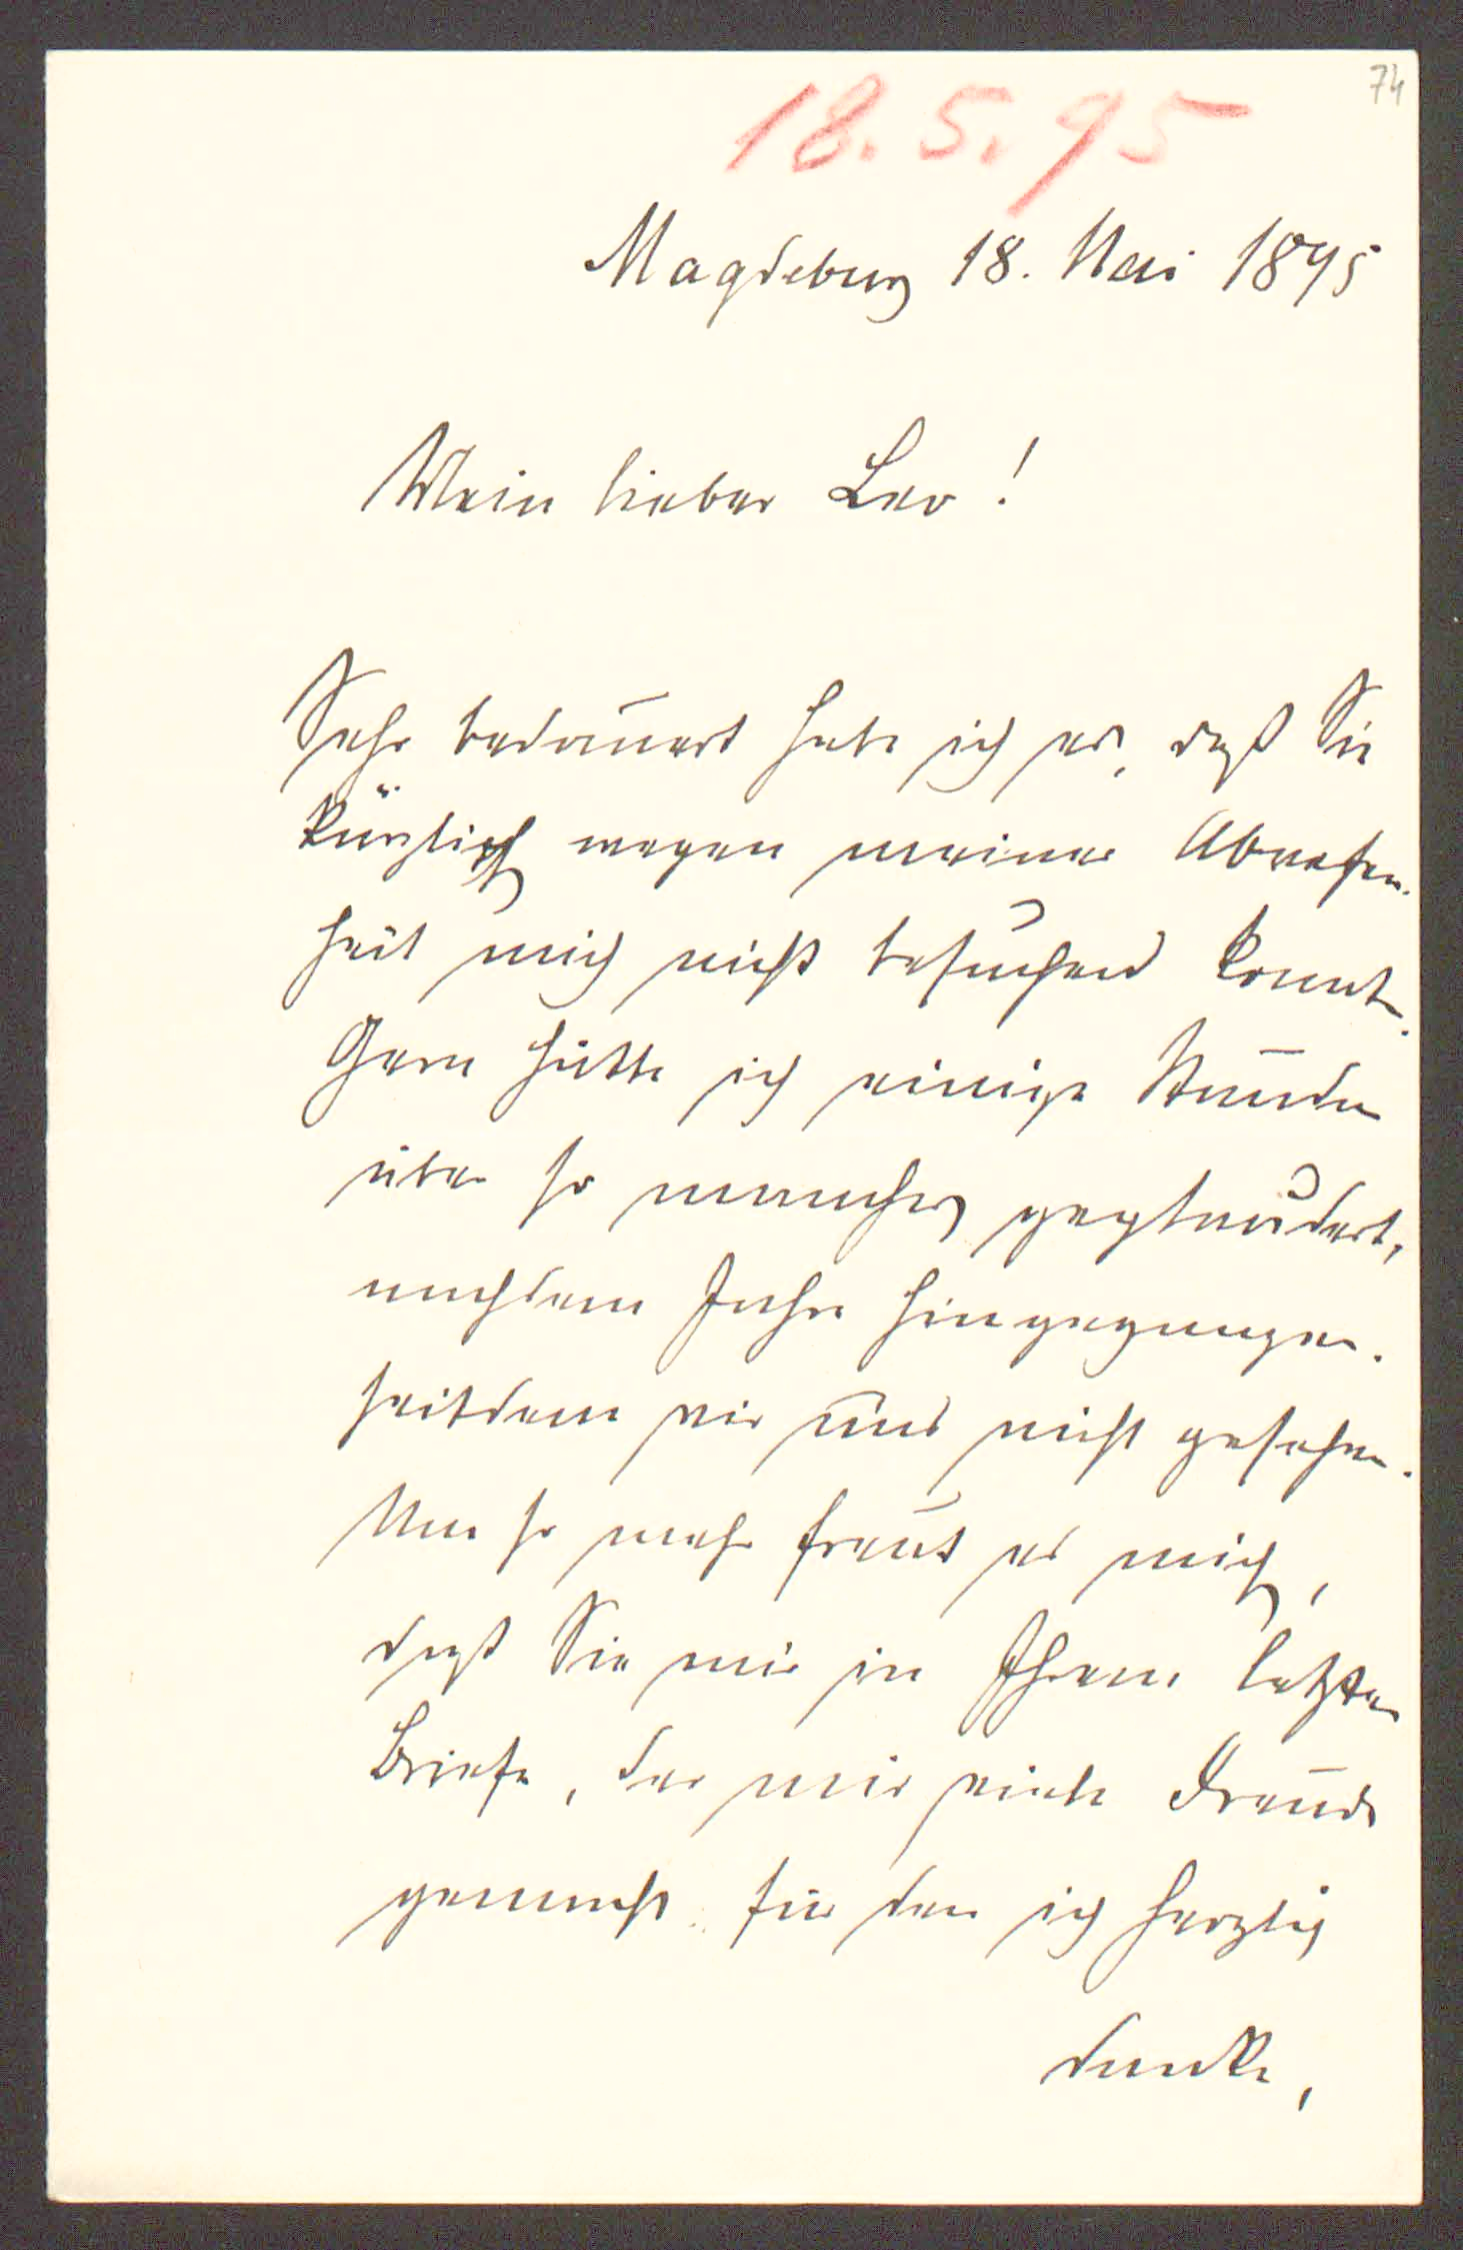 74
18. 5. 95
Magdeburg 18. Mai 1895
Mein lieber Leo!
Sehr bedauert habe ich es, daß Sie
kürzlich wegen meiner Abwesen-
heit mich nicht besuchen konnten.
Gern hätte ich einige Stunden
über so manches geplaudert,
nachdem Jahre hingegangen,
seitdem wir uns nicht gesehen.
Um so mehr freut es mich,
daß Sie mir in Ihrem letzten
Briefe, der mir viele Freude
gemacht für den ich herzlich
danke,